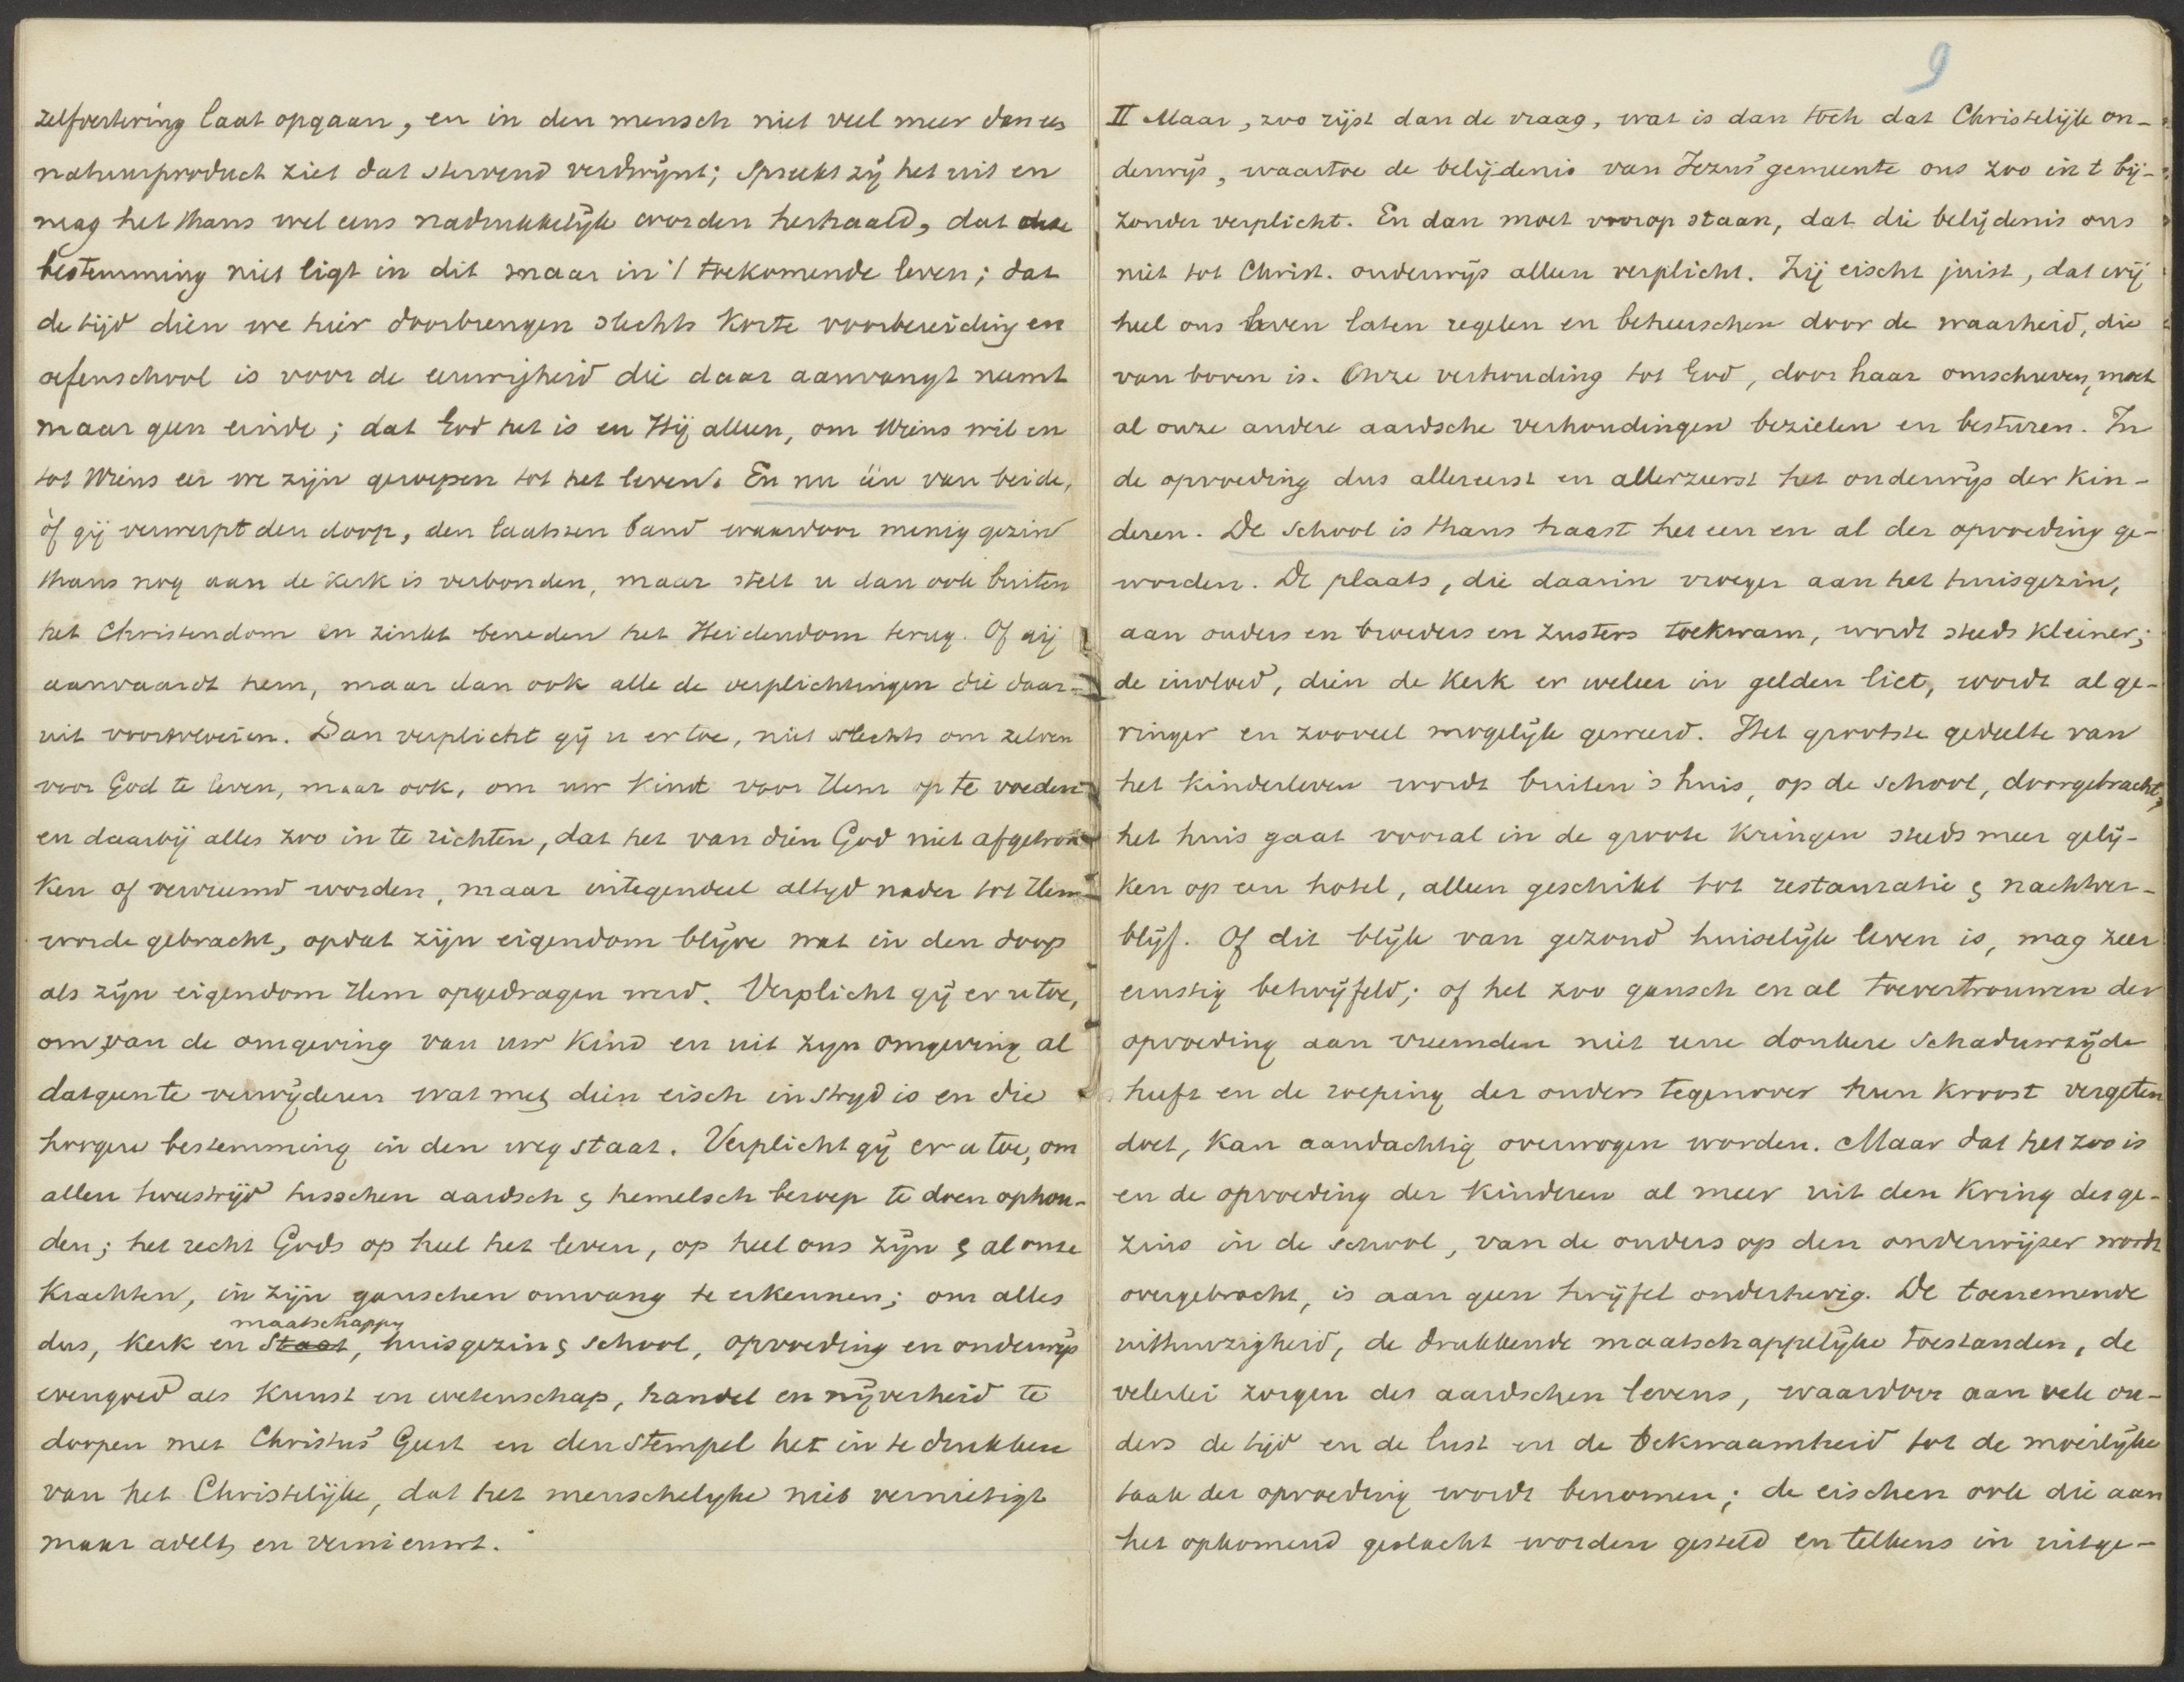 zelfvertering laat opgaan, en in den mensch niet veel meer dan een
natuurproduct ziet dat stervend verdwijnt; spreekt zij het uit en
mag het thans wel eens nadrukkelijk worden herhaald, dat onze
bestemming niet ligt in dit maar in 't toekomende leven; dat
de tijd dien we hier doorbrengen slechts korte voorbereiding en
oefenschool is voor de eeuwigheid die daar aanvangt neemt
maar geen einde; dat God het is en Hij alleen, om Wiens wil en
tot Wiens eer we zijn geroepen tot het leven. En nu één van beide,
òf gij verwerpt den doop, den laatsten band waardoor menig gezin
thans nog aan de kerk is verbonden, maar stelt u dan ook buiten
het Christendom en zinkt beneden het Heidendom terug. Of gij
aanvaardt hem, maar dan ook alle de verplichtingen die daar-
uit voortvloeien. Dan verplicht gij u er toe, niet slechts om zelven
voor God te leven, maar ook, om uw kind voor Hem op te voeden
en daarbij alles zoo in te richten, dat het van dien God niet afgetrok-
ken of vervreemd worden, maar integendeel altyd nader tot Hem
worde gebracht, opdat zijn eigendom blijve wat in den doop
als zijn eigendom Hem opgedragen werd. Verplicht gij er u toe,
om van de omgeving van uw kind en uit zyn omgeving al
datgeen te verwijderen wat met dien eisch in stryd is en die
hoogere bestemming in den weg staat. Verplicht gij er u toe, om
allen tweestrijd tusschen aardsch & hemelsch beroep te doen ophou-
den; het recht Gods op heel het leven, op heel ons zijn & al onze
krachten, in zijn ganschen omvang te erkennen; om alles
maatschappy
dus, kerk en Staat, huisgezin & school, opvoeding en onderwijs
evengoed als kunst en wetenschap, handel en nijverheid te
doopen met Christus' Geest en den stempel het in te drukken
van het Christelijke, dat het menschelyke niet vernietigt
maar adelt en vernieuwt.
9
II Maar, zoo rijst dan de vraag, wat is dan toch dat Christelijk on-
derwijs, waartoe de belijdenis van Jezus' gemeente ons zoo in 't bij-
zonder verplicht. En dan moet voorop staan, dat die belijdenis ons
niet tot Christ. onderwijs alleen verplicht. Zij eischt juist, dat wij
heel ons leven laten regelen en beheerschen door de waarheid, die
van boven is. Onze verhouding tot God, door haar omschreven, moet
al onze andere aardsche verhoudingen bezielen en besturen. In
de opvoeding dus allereerst en allerzeerst het onderwijs der kin-
deren. De school is thans haast het een en al der opvoeding ge-
worden. De plaats, die daarin vroeger aan het huisgezin,
aan ouders en broeders en zusters toekwam, wordt steeds kleiner;
de invloed, dien de kerk er weleer in gelden liet, wordt al ge-
ringer en zooveel mogelijk geweerd. Het grootste gedeelte van
het kinderleven wordt buiten 's huis, op de school, doorgebracht;
het huis gaat vooral in de groote kringen steeds meer gelij-
ken op een hotel, alleen geschikt tot restauratie & nachtver-
blijf. Of dit blijk van gezond huiselijk leven is, mag zeer
ernstig betwijfeld; of het zoo gansch en al toevertrouwen der
opvoeding aan vreemden niet eene donkere schaduwzijde
heeft en de roeping der ouders tegenover hun kroost vergeten
doet, kan aandachtig overwogen worden. Maar dat het zoo is
en de opvoeding der kinderen al meer uit den kring des ge-
zins in de school, van de ouders op den onderwijzer wordt
overgebracht, is aan geen twijfel onderhevig. De toenemende
uithuizigheid, de drukkende maatschappelijke toestanden, de
velerlei zorgen des aardschen levens, waardoor aan vele ou-
ders de tijd en de lust en de bekwaamheid tot de moeilijke
taak der opvoeding wordt benomen; de eischen ook die aan
het opkomend geslacht worden gesteld en telkens in uitge-